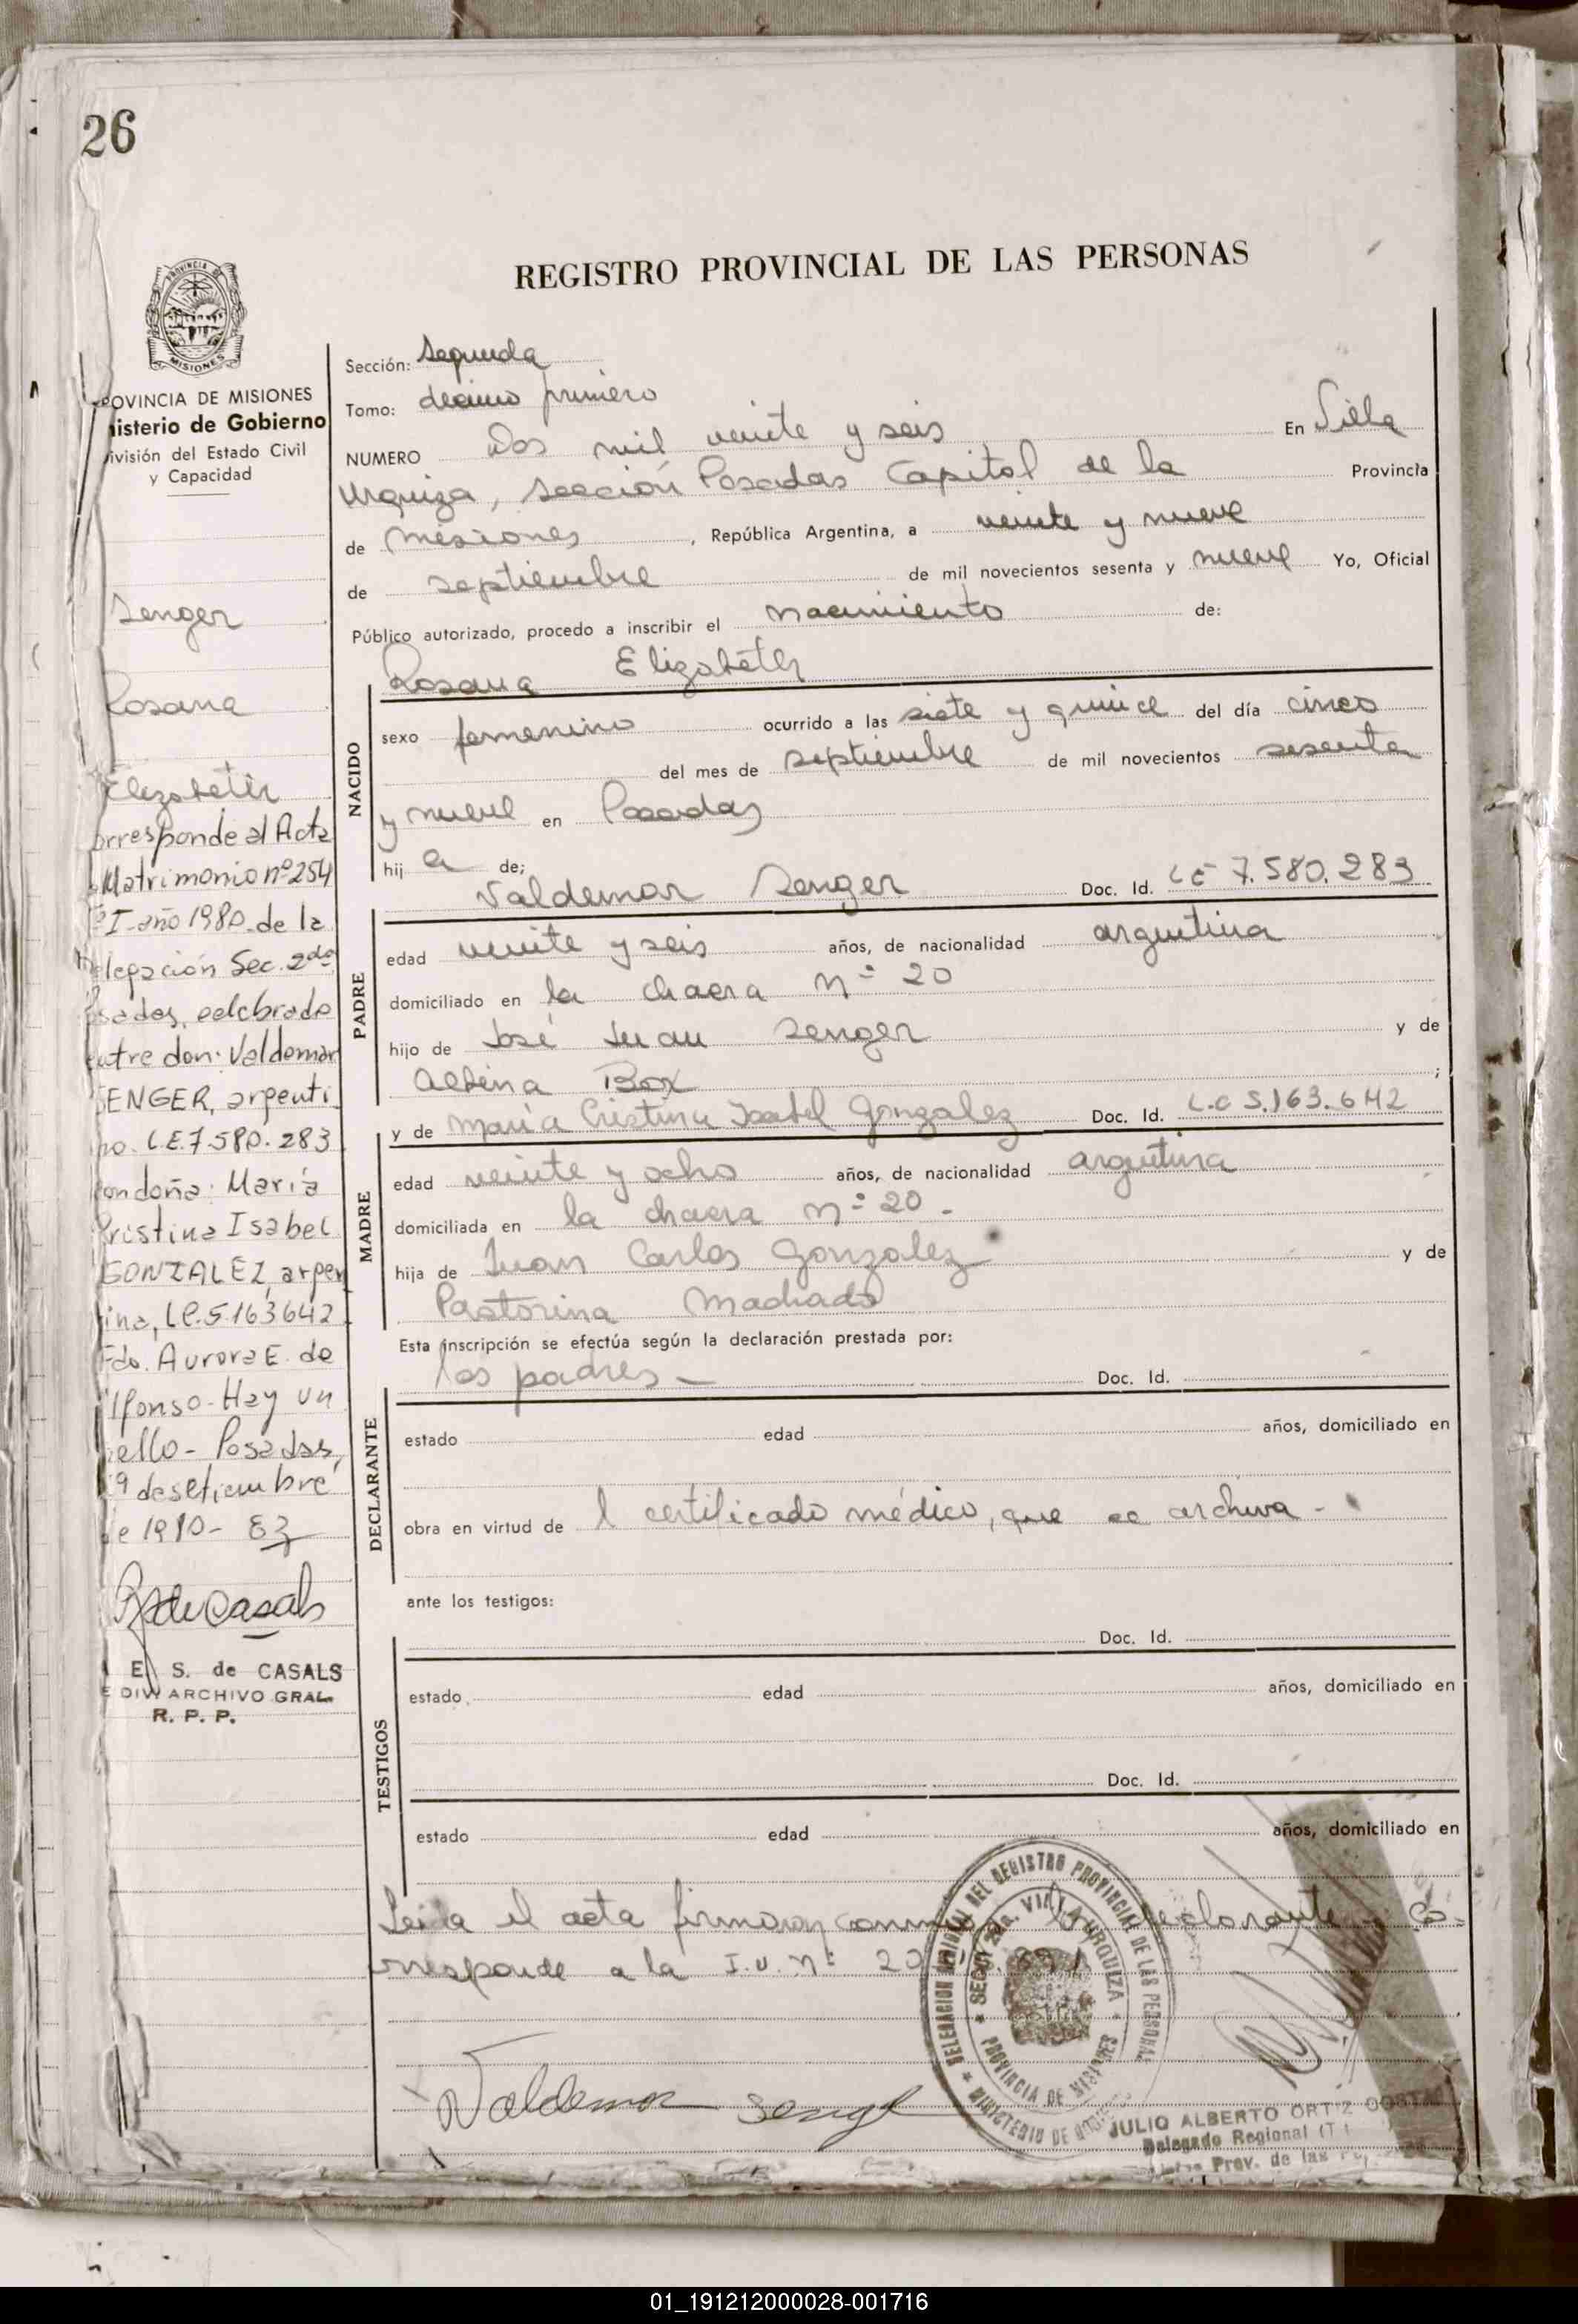 26
REGISTRO PROVINCIAL DE LAS PERSONAS
PROVINCIA DE
MISIONES
OVINCIA DE MISIONES
isterio de Gobierno
ivisión del Estado Civil
y Capacidad
Senger
Rosana
Elizabeth
orresponde al Acta
Matrimonio nº 254
Tº I año 1980 de la
legación Sec. 2da
sadas, celebrado
entre don: Valdemar
SENGER, argenti
no. L.E. 7.580.283
con doña: María
Cristina Isabel
GONZALEZ, argen
ina, L.C. 5.163.642
Fdo. Aurora E. de
lfonso - Hay un
sello - Posadas,
de setiembre
de 1980 -
E. S. de CASALS
DIV. ARCHIVO GRAL.
R. P. P.
Sección: Segunda
Tomo: décimo primero
NUMERO Dos mil veinte y seis En Villa
Urquiza, Sección Posadas Capital de la Provincia
de Misiones, República Argentina, a veinte y nueve
de septiembre de mil novecientos sesenta y nueve Yo, Oficial
Público autorizado, procedo a inscribir el nacimiento de:
Rosana Elizabeth
NACIDO
sexo femenino ocurrido a las siete y quince del día cinco
del mes de septiembre de mil novecientos sesenta
y nueve en Posadas
hij a de;
Valdemar Senger Doc. Id. LE 7.580.283
PADRE
edad veinte y seis años, de nacionalidad argentina
domiciliado en la chacra nº 20
hijo de José Juan Senger y de
Albina Box ;
y de María Cristina Isabel Gonzalez Doc. Id. L.C 5.163.642
MADRE
edad veinte y ocho años, de nacionalidad argentina
domiciliada en la chacra nº 20 -
hija de Juan Carlos Gonzalez y de
Pastorina Machado
Esta inscripción se efectúa según la declaración prestada por:
los padres - Doc. Id.
DECLARANTE
estado edad años, domiciliado en
obra en virtud de l certificado médico, que se archiva -
ante los testigos:
Doc. Id.
TESTIGOS
estado edad años, domiciliado en
Doc. Id.
estado edad años, domiciliado en
Leída el acta firman conmigo declarante - Co-
rresponde a la I.U. nº 20
DELEGACION REGIONAL DEL REGISTRO PROVINCIAL DE LAS PERSONAS
MINISTERIO DE
SECC. 2da. VILLA URQUIZA
PROVINCIA DE MISIONES
Valdemar Senger
JULIO ALBERTO ORTIZ
Delegado Regional
Prov. de las
01_191212000028-001716